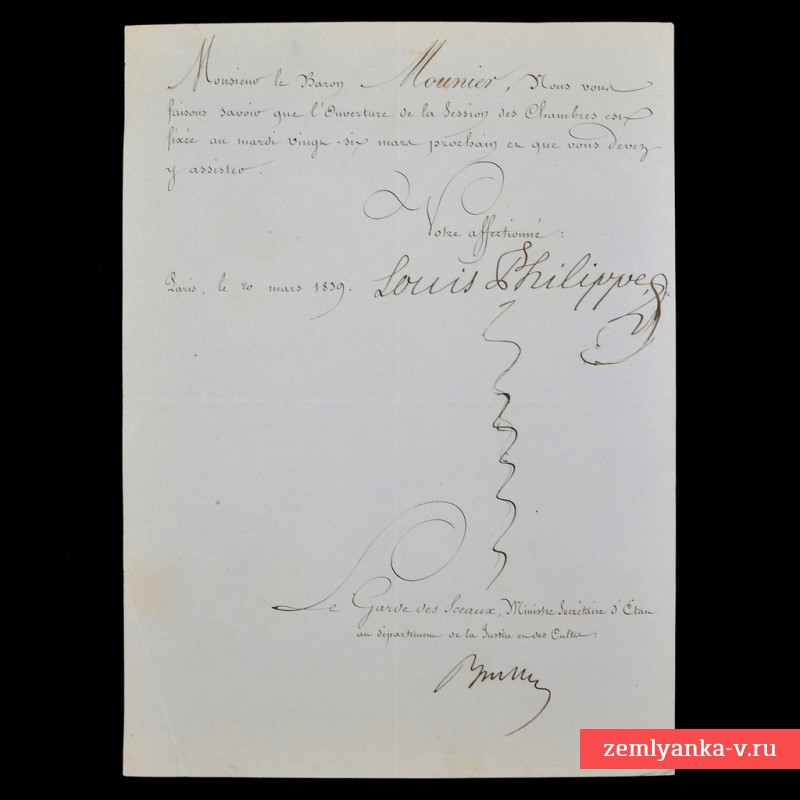 Monsieur le Baron Mounier, Nous vous
faisons savoir que l'Ouverture de la Session des Chambres est
fixée au mardi vingt-six mars prochain et que vous devez
y assister.
Votre affectionné :
Paris, le 20 mars 1839. Louis Philippe
Le Garde des Sceaux, Ministre Secrétaire d'Etat
au département de la Justice et des Cultes,
zemlyanka-v.ru